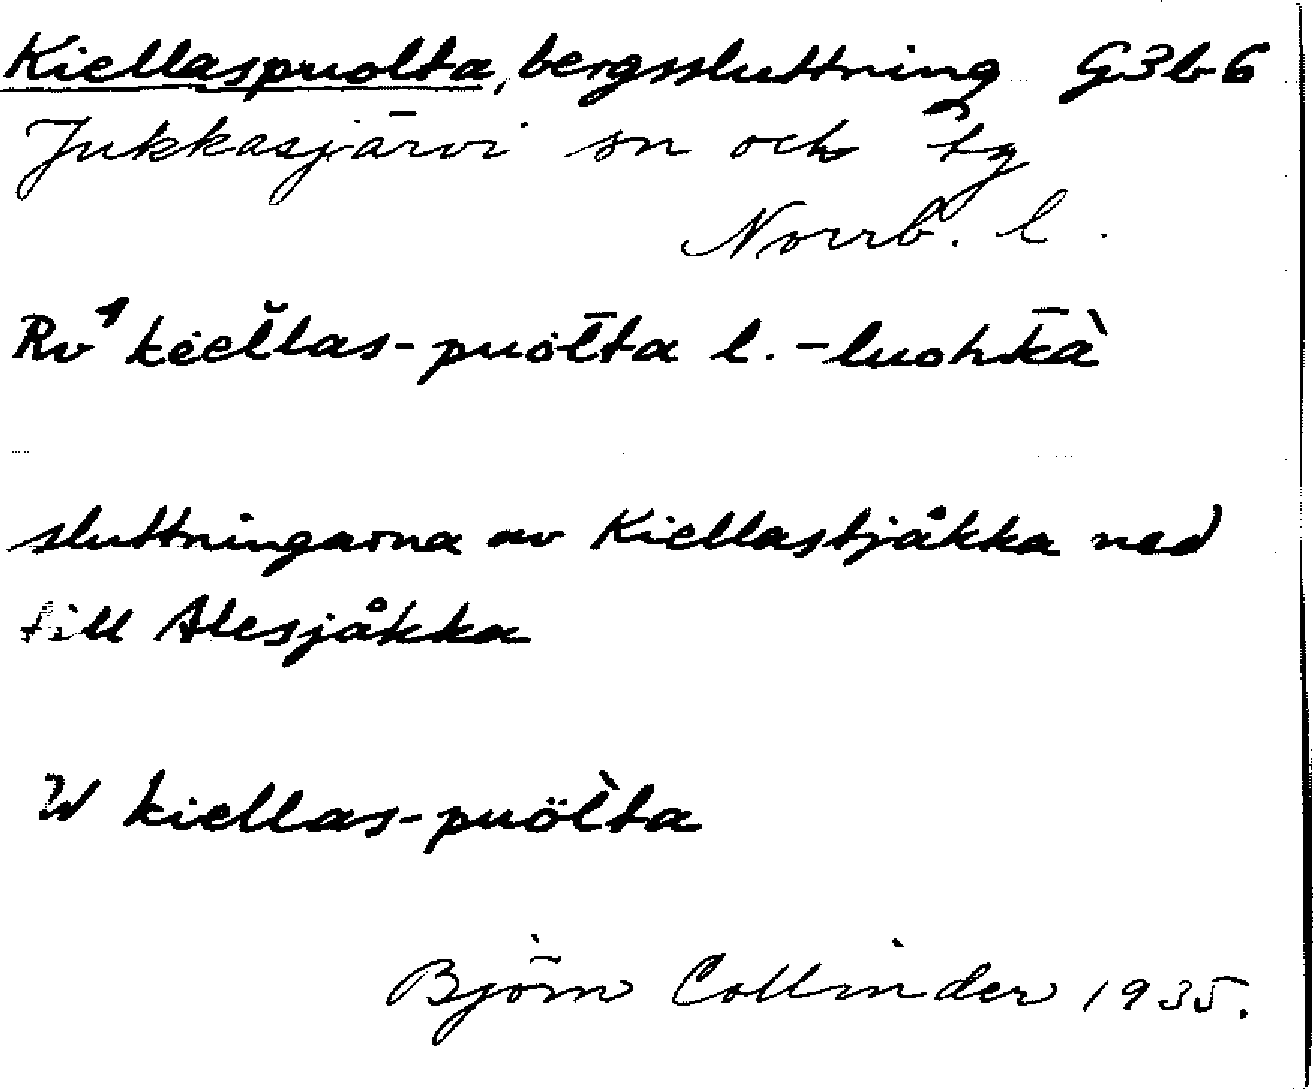 Kiellaspuolta, bergssluttning G3b6
Jukkasjärvi sn och tg
Norrb. l.
Rv¹ kėĕl̆las-puöl̄ta l. -luoht̄kà
sluttningarna av Kiellastjåkka ned
till Alesjåkka
W kiellas-puöl̀ta
Björn Collinder 1935.